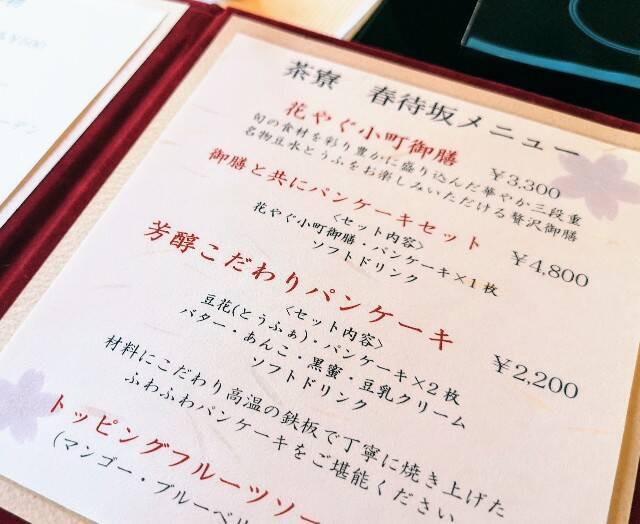 ¥500
ーデン
茶寮 春待坂メニュー
花やぐ小町御膳 ¥3,300
旬の食材を彩り豊かに盛り込んだ華やか三段重
名物豆水とうふをお楽しみいただける贅沢御膳
御膳と共にパンケーキセット ¥4,800
<セット内容>
花やぐ小町御膳・パンケーキ×1枚
ソフトドリンク
芳醇こだわりパンケーキ ¥2,200
<セット内容>
豆花(とうふぁ)・パンケーキ×2枚
バター・あんこ・黒蜜・豆乳クリーム
ソフトドリンク
材料にこだわり高温の鉄板で丁寧に焼き上げた
ふわふわパンケーキをご堪能ください
トッピングフルーツソー
(マンゴー・ブルーベリ